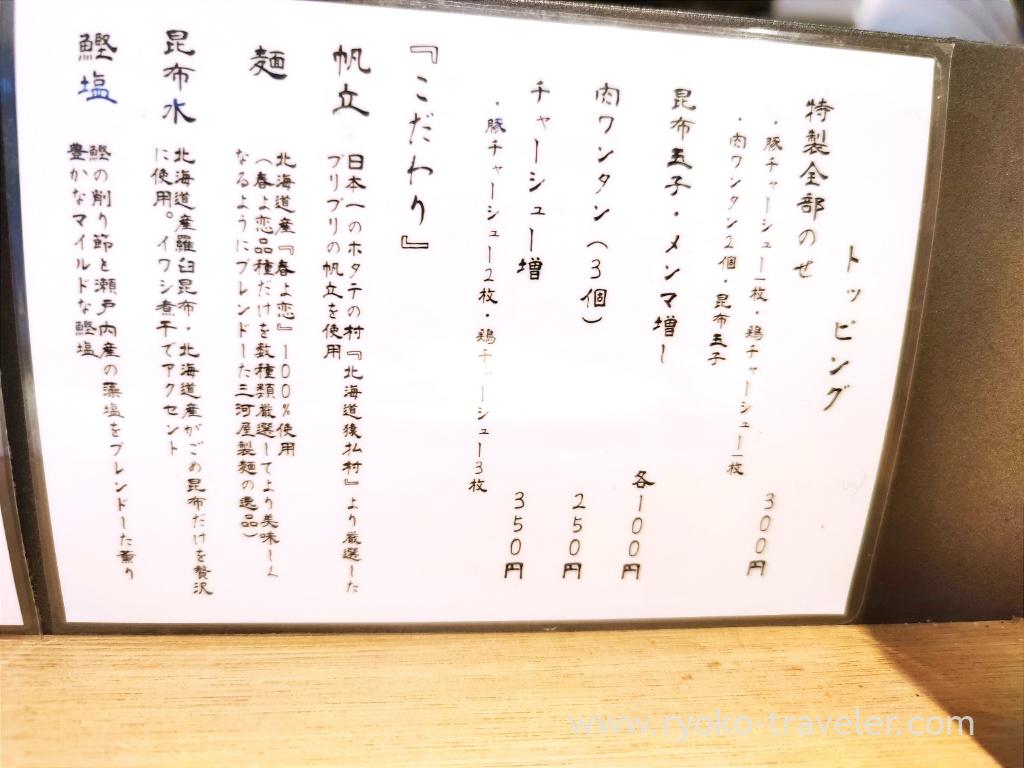 トッピング
特製全部のせ
・豚チャーシュー一枚・鶏チャーシュー一枚
・肉ワンタン2個・昆布玉子
300円
昆布玉子・メンマ増し
各100円
肉ワンタン(3個)
250円
チャーシュー増
・豚チャーシュー2枚・鶏チャーシュー3枚
350円
『こだわり』
帆立
日本一のホタテの村『北海道猿払村』より厳選した
プリプリの帆立を使用
麺
北海道産『春よ恋』100%使用
(春よ恋品種だけを数種類厳選してより美味しく
なるようにブレンドした三河屋製麺の逸品)
昆布水
北海道産羅臼昆布・北海道産がごめ昆布だけを贅沢
に使用。イワシ煮干でアクセント
鰹塩
鰹の削り節と瀬戸内産の藻塩をブレンドした薫り
豊かなマイルドな鰹塩
www.ryoko-traveler.com